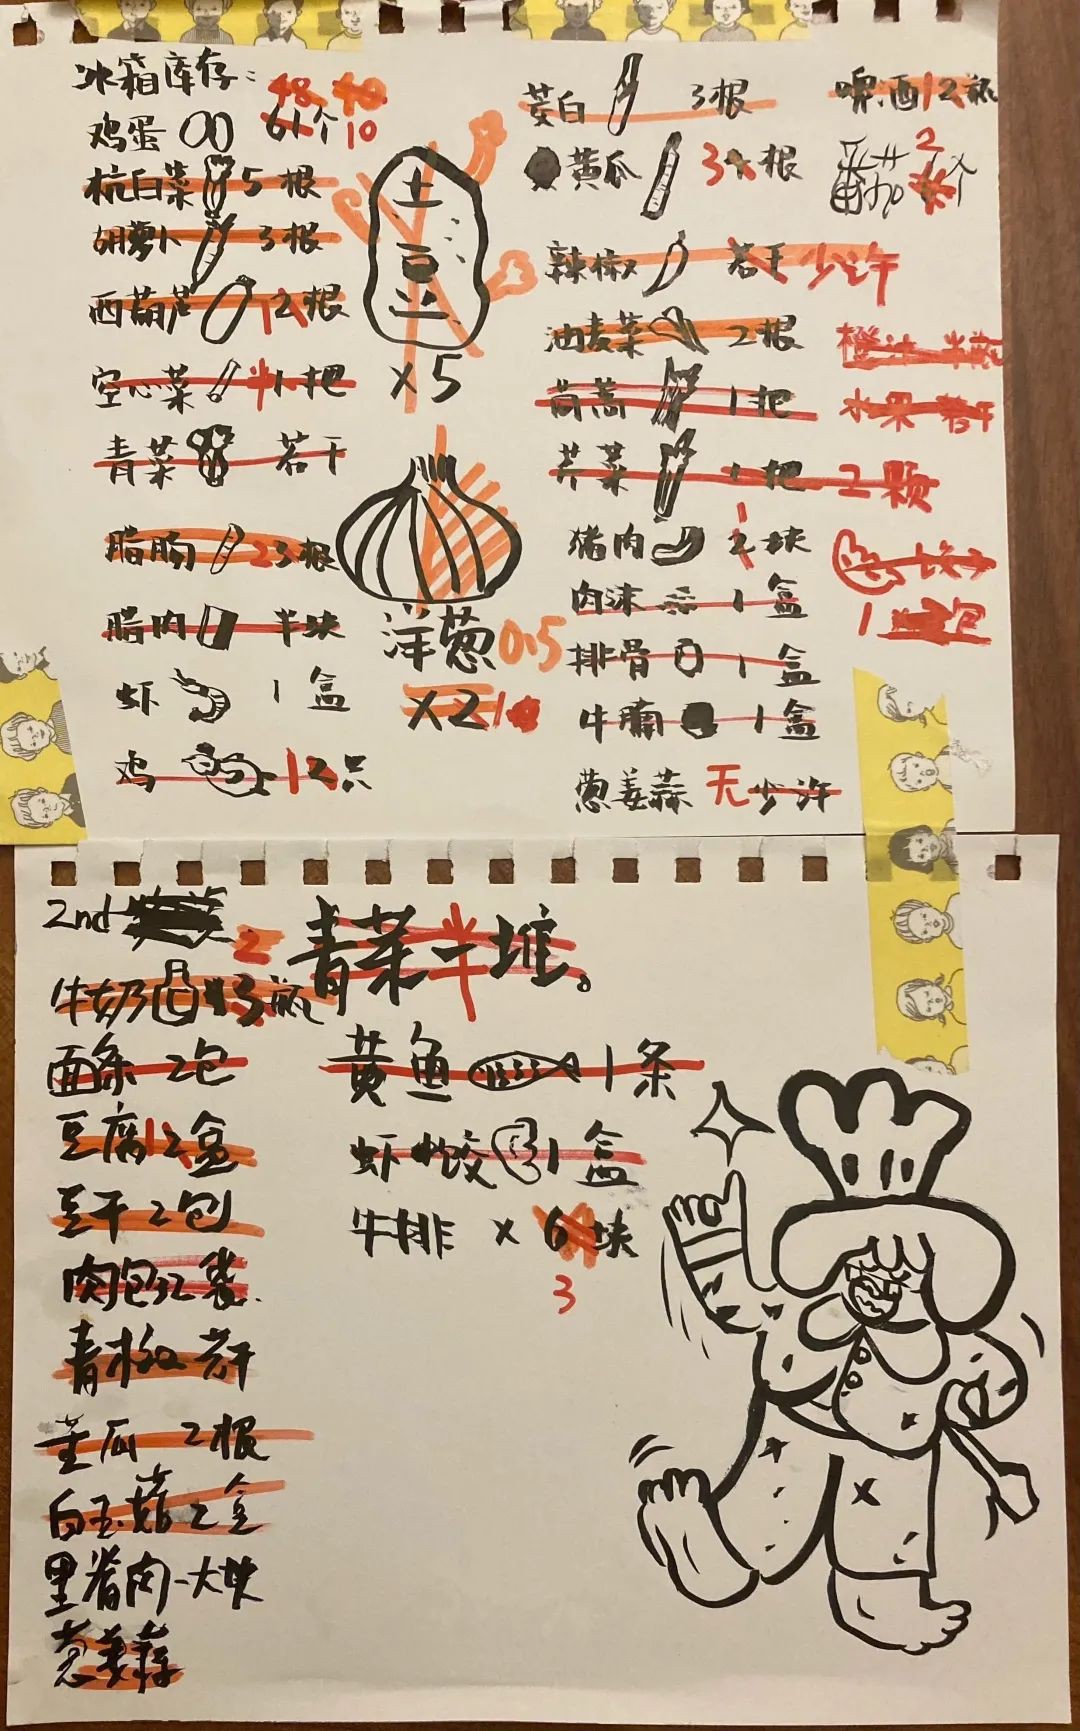 冰箱库存:
鸡蛋 61个 48 40 10
杭白菜 5根
胡萝卜 3根
西葫芦 1 2根
空心菜 半 1把
青菜 若干
腊肠 2 3根
腊肉 半块
虾 1盒
鸡 1 2只
土豆
x5
洋葱 0.5
x2 1
茭白 3根
黄瓜 3 根
辣椒 若干 少许
油麦菜 2根
茼蒿 1把
芹菜 1把 2颗
猪肉 2块 1
肉沫 1盒
排骨 1盒
牛腩 1盒
葱姜蒜 无 少许
啤酒 1 2瓶
番茄 2 个
橙汁半瓶
水果若干
1 包
2nd
牛奶 3瓶 2
面条 2包
豆腐 1 2盒
豆干 2包
肉包 2袋
青椒 若干
苦瓜 2根
白玉菇 2盒
里脊肉一大块
葱姜蒜
青菜一堆。 半
黄鱼 1条
虾饺 1盒
牛排 x 6块
3